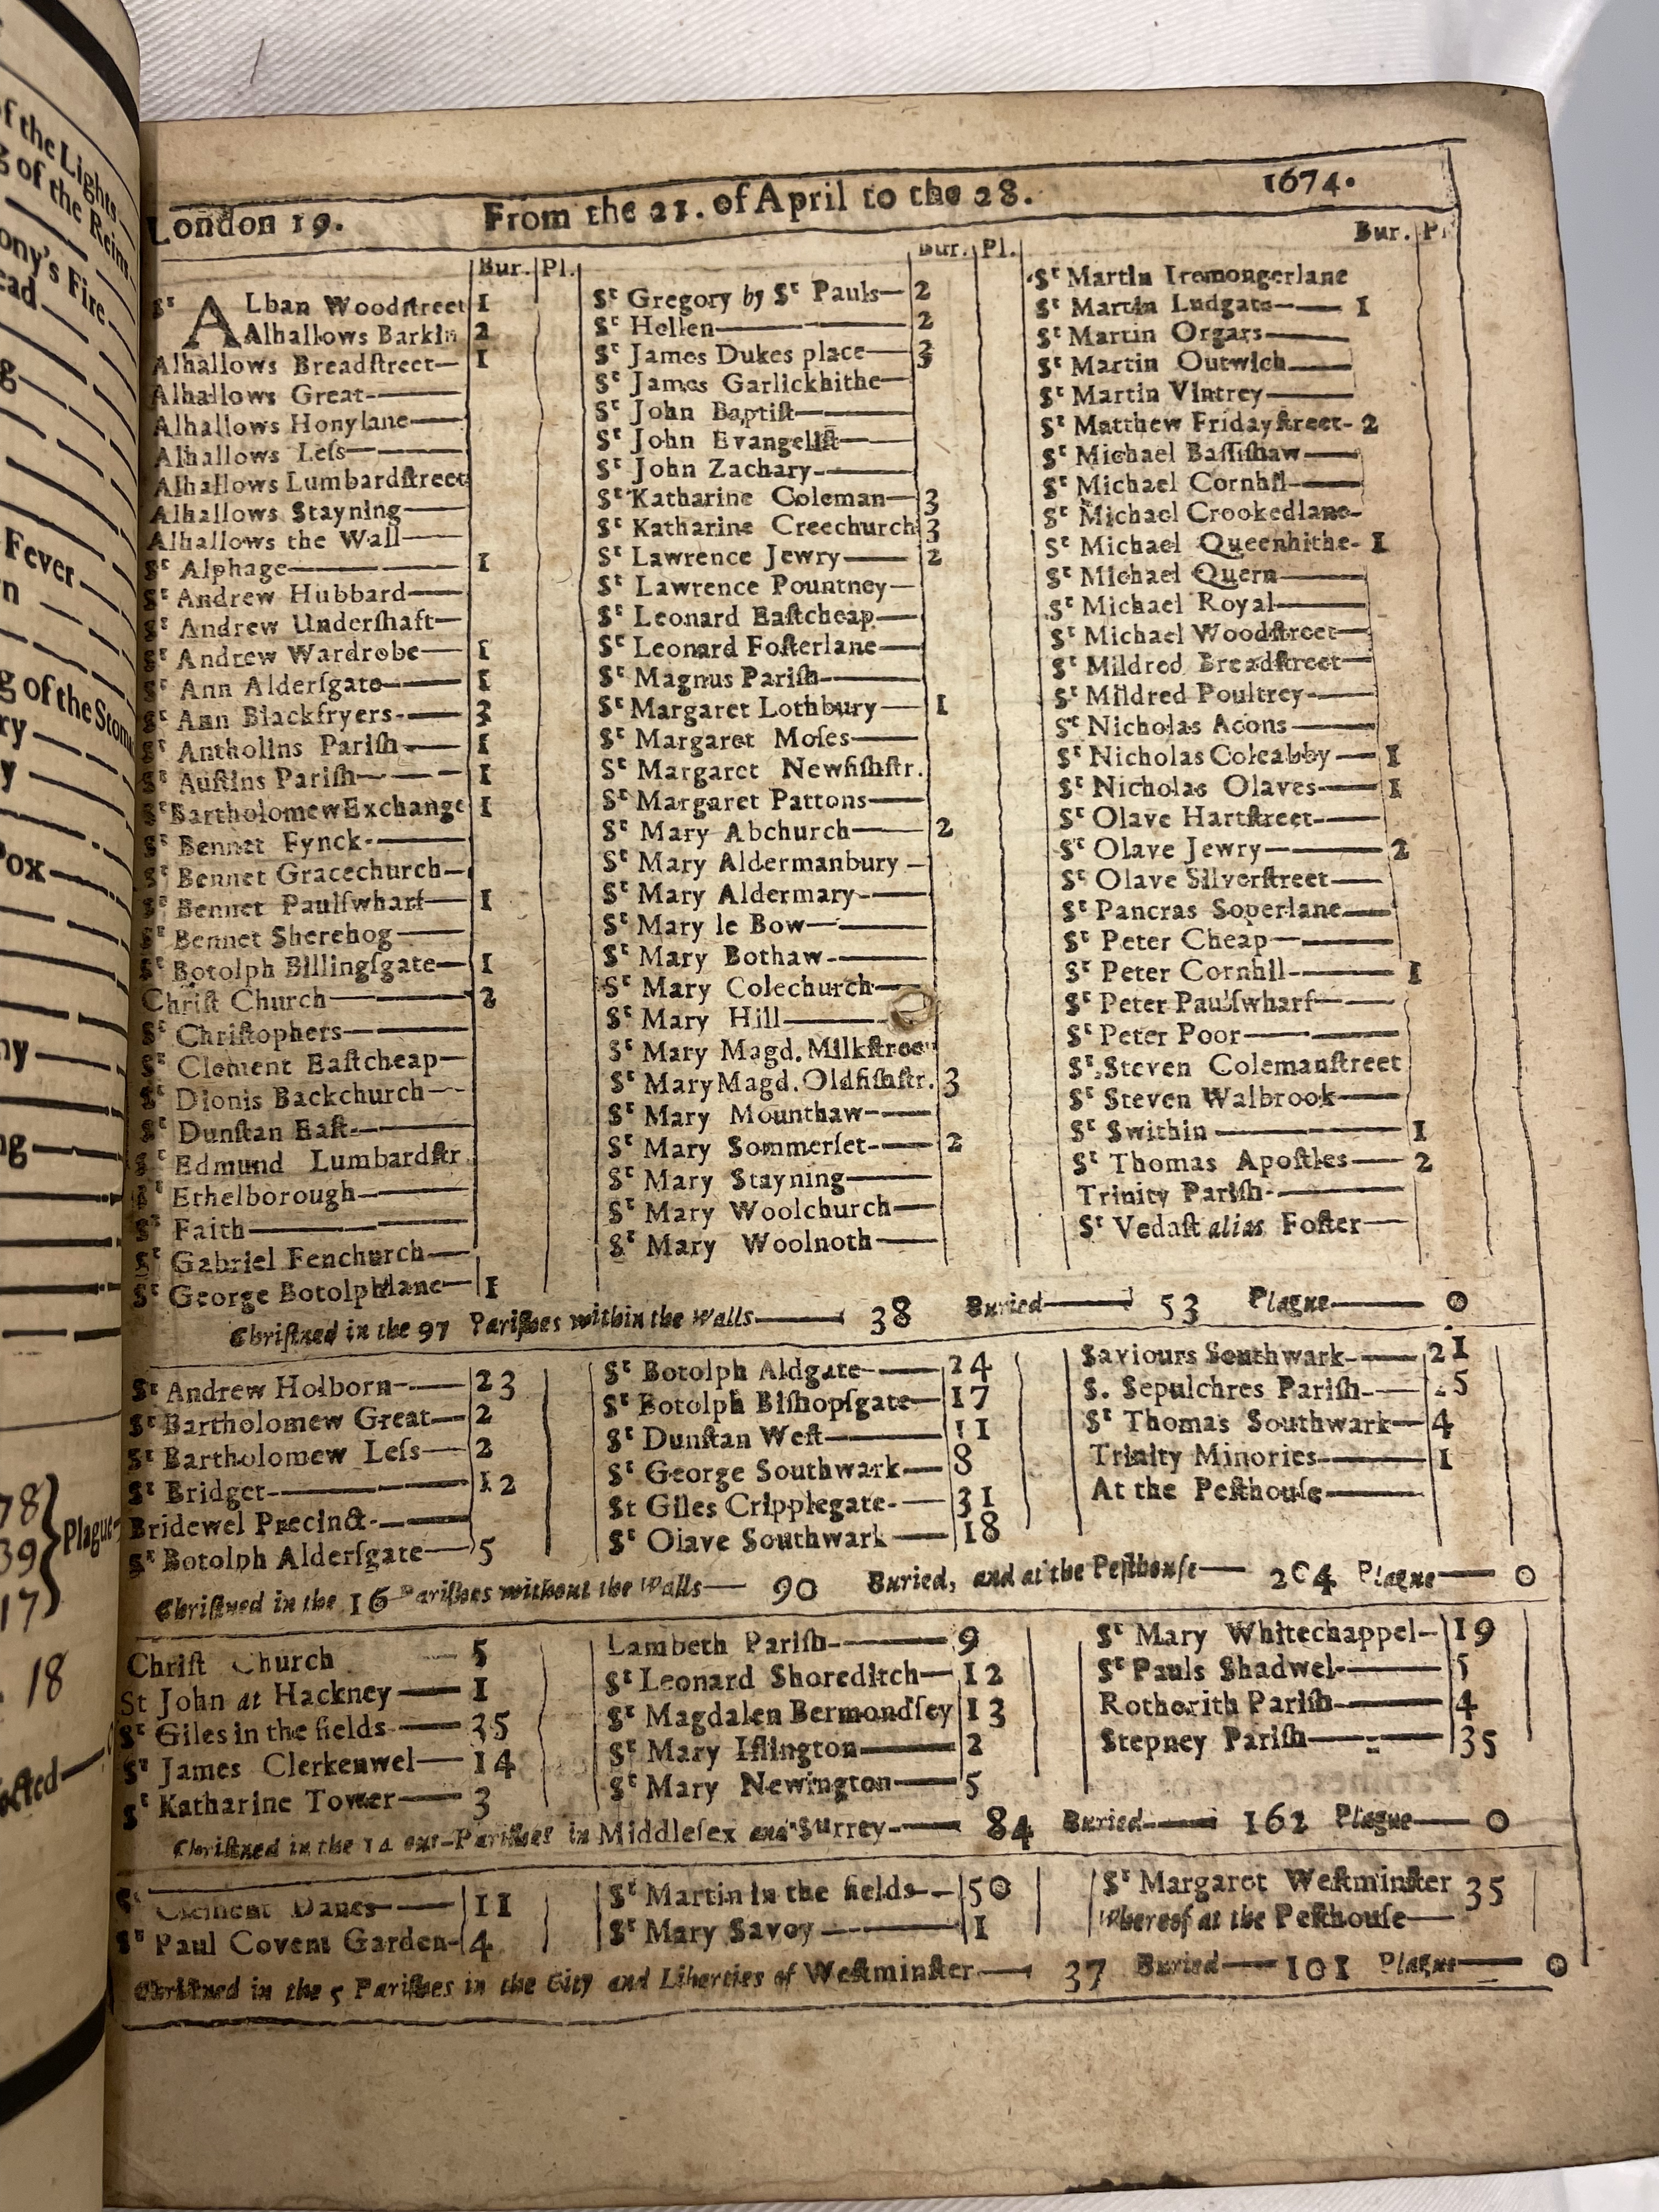 of the Lights
g of the Reins
ony's Fire
ead
g
Fever
n
g of the Stom
ry
y
Pox
ny
ng
78
39
17
Plague
18
London 19. From the 21. of April to the 28. 1674.
Bur. Pl.
St ALban Woodſtreet 1
Alhallows Barkin 2
Alhallows Breadſtreet— 1
Alhallows Great
Alhallows Honylane
Alhallows Leſs
Alhallows Lumbardſtreet
Alhallows Stayning
Alhallows the Wall
St Alphage 1
St Andrew Hubbard
St Andrew Underſhaft
St Andrew Wardrobe 1
St Ann Alderſgate 1
St Ann Blackfryers 3
St Antholins Pariſh 1
St Auſtins Pariſh 1
St Bartholomew Exchange 1
St Bennet Fynck
St Bennet Gracechurch
St Bennet Paulſwharf 1
St Bennet Sherehog
St Botolph Billingſgate 1
Chriſt Church 2
St Chriſtophers
St Clement Eaſtcheap
St Dionis Backchurch
St Dunſtan Eaſt
St Edmund Lumbardſtr.
St Ethelborough
St Faith
St Gabriel Fenchurch
St George Botolphlane 1
Bur. Pl.
St Gregory by St Pauls 2
St Hellen 2
St James Dukes place 3
St James Garlickhithe
St John Baptiſt
St John Evangeliſt
St John Zachary
St Katharine Coleman 3
St Katharine Creechurch 3
St Lawrence Jewry 2
St Lawrence Pountney
St Leonard Eaſtcheap
St Leonard Foſterlane
St Magnus Pariſh
St Margaret Lothbury 1
St Margaret Moſes
St Margaret Newfiſhſtr.
St Margaret Pattons
St Mary Abchurch 2
St Mary Aldermanbury
St Mary Aldermary
St Mary le Bow
St Mary Bothaw
St Mary Colechurch
St Mary Hill
St Mary Magd. Milkſtreet
St Mary Magd. Oldfiſhſtr. 3
St Mary Mounthaw
St Mary Sommerſet 2
St Mary Stayning
St Mary Woolchurch
St Mary Woolnoth
Bur. Pl
St Martin Iremongerlane
St Martin Ludgate 1
St Martin Orgars
St Martin Outwich
St Martin Vintrey
St Matthew Fridayſtreet 2
St Michael Baſſiſhaw
St Michael Cornhil
St Michael Crookedlane
St Michael Queenhithe 1
St Michael Quern
St Michael Royal
St Michael Woodſtreet
St Mildred Breadſtreet
St Mildred Poultrey
St Nicholas Acons
St Nicholas Coleabby 1
St Nicholas Olaves 1
St Olave Hartſtreet
St Olave Jewry 2
St Olave Silverſtreet
St Pancras Soperlane
St Peter Cheap
St Peter Cornhil 1
St Peter Paulſwharf
St Peter Poor
St Steven Colemanſtreet
St Steven Walbrook
St Swithin 1
St Thomas Apoſtles 2
Trinity Pariſh
St Vedaſt alias Foſter
Chriſtned in the 97 Pariſhes within the Walls 38 Buried 53 Plague 0
St Andrew Holborn 23
St Bartholomew Great 2
St Bartholomew Leſs 2
St Bridget 12
Bridewel Precinct
St Botolph Alderſgate 5
St Botolph Aldgate 24
St Botolph Biſhopſgate 17
St Dunſtan Weſt 11
St George Southwark 8
St Giles Cripplegate 31
St Olave Southwark 18
Saviours Southwark 21
S. Sepulchres Pariſh 5
St Thomas Southwark 4
Trinity Minories 1
At the Peſthouſe
Chriſtned in the 16 Pariſhes without the Walls 90 Buried, and at the Peſthouſe 204 Plague 0
Chriſt Church 5
St John at Hackney 1
St Giles in the fields 35
St James Clerkenwel 14
St Katharine Tower 3
Lambeth Pariſh 9
St Leonard Shoreditch 12
St Magdalen Bermondſey 13
St Mary Iſlington 2
St Mary Newington 5
St Mary Whitechappel 19
St Pauls Shadwel 5
Rotherith Pariſh 4
Stepney Pariſh 35
Chriſtned in the 14 out-Pariſhes in Middleſex and Surrey 84 Buried 162 Plague 0
St Clement Danes 11
St Paul Covent Garden 4
St Martin in the fields 50
St Mary Savoy 1
St Margaret Weſtminſter 35
Whereof at the Peſthouſe
Chriſtned in the 5 Pariſhes in the City and Liberties of Weſtminſter 37 Buried 101 Plague 0